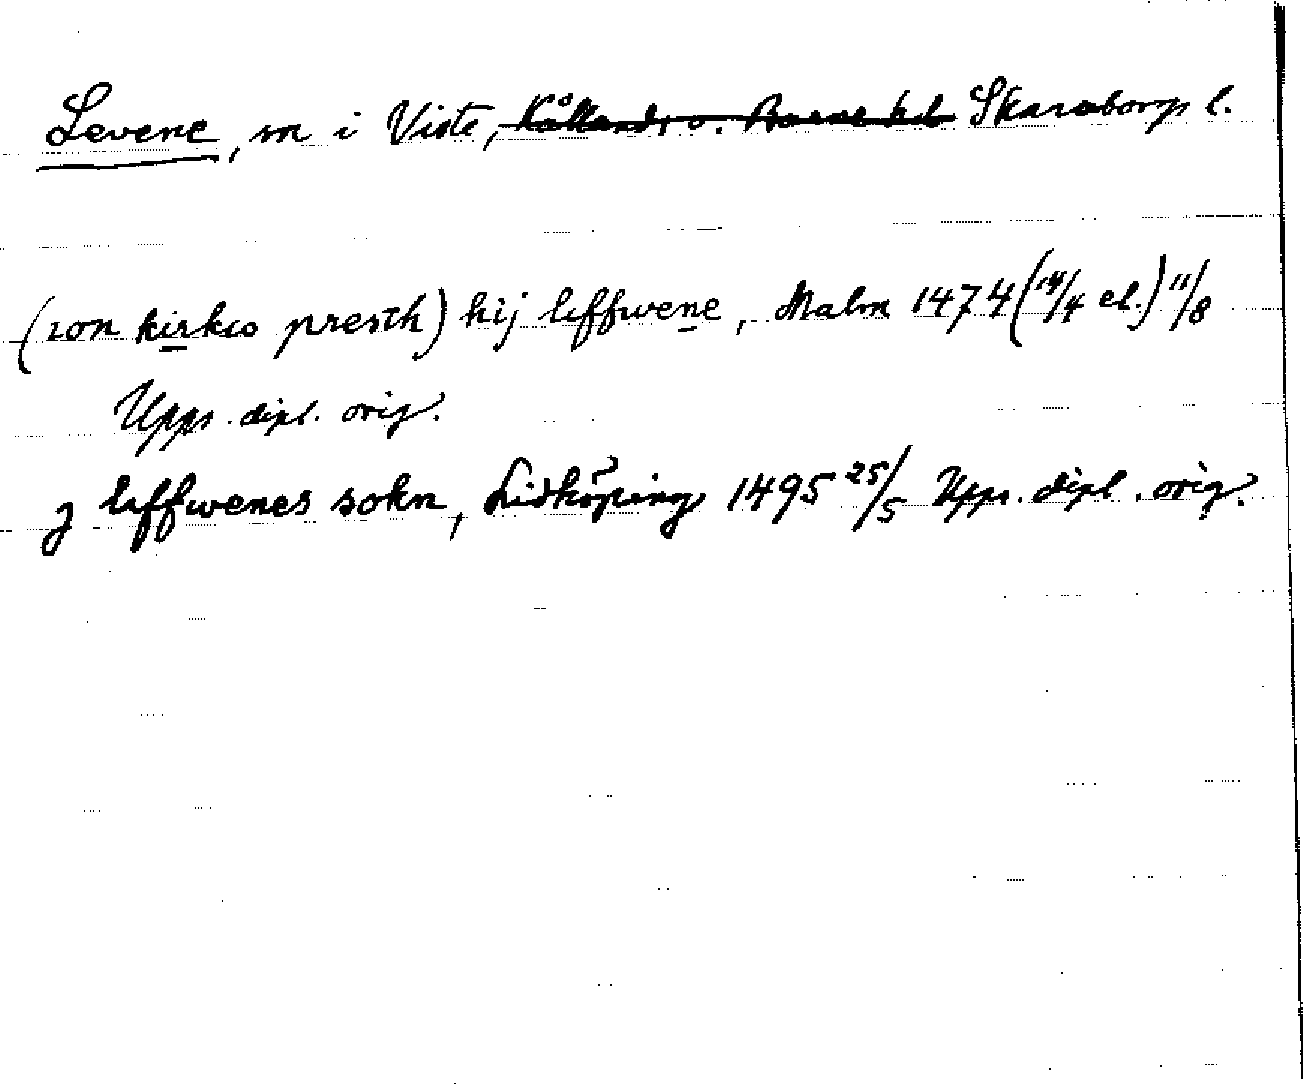 Levene, sn i Viste, Kållands o. Barne hd Skaraborgs l.
(son kirkio presth) hij leffwene, Malm 1474 (14/4 el.) 11/8
Upps. dipl. orig.
j leffwenes sokn, Lidköping 1495 25/5 Upps. dipl. orig.